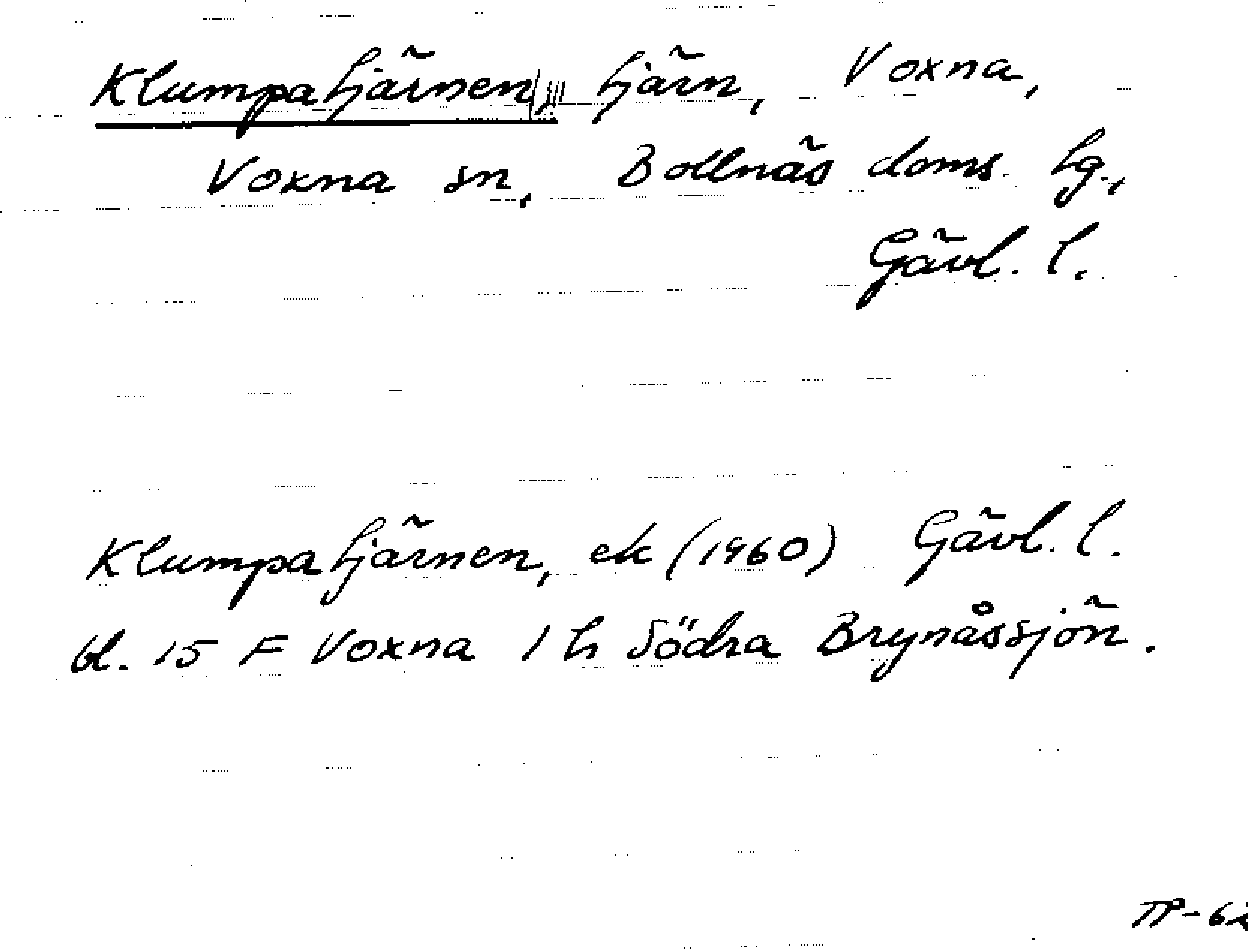 Klumpatjärnen, tjärn, Voxna,
Voxna sn, Bollnäs doms. tg.,
Gävl. l.
Klumpatjärnen, ek (1960) Gävl. l.
bl. 15 F Voxna 1 h Södra Brynåssjön.
TP-62